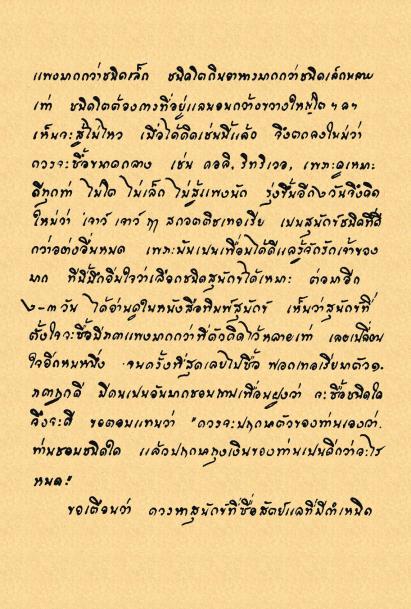 แพงมากกว่าชนิดเล็ก ชนิดโตกินอาหารมากกว่าชนิดเล็กหลาย
เท่า ชนิดโตต้องการที่อยู่และนอนกว้างขวางใหญ่โต ๆ ๆ
เห็นจะสู้ไม่ไหว เมื่อได้คิดเช่นนี้แล้ว จึงตกลงใหม่ว่า
ควรจะซื้อขนาดกลาง เช่น คอลี, ริทริเวอ, เพราะดูเหมาะ
ดีทุกท่า ไม่โต ไม่เล็ก ไม่สู้แพงนัก รุ่งขึ้นอีกวันจึงคิด
ใหม่ว่า เจาว์ เจาว์ ฤๅ สกอตติชเทอเรีย เปนสุนัขชนิดที่ดี
กว่าอย่างอื่นหมด เพราะมันเปนเพื่อนได้ดีแลรู้จักรักเจ้าของ
มาก ที่นี้นึกอิ่มใจว่าเลือกชนิดสุนัขได้เหมาะ ต่อมาอีก
๒-๓ วัน ได้อ่านดูในหนังสือพิมพ์สุนัข เห็นว่าสุนัขที่
ตั้งใจจะซื้อมีราคาแพงมากกว่าที่ตัวคิดไว้หลายเท่า เลยเปลี่ยน
ใจอีกหนหนึ่ง จนครั้งที่สุดเลยไปซื้อ ฟอกเทอเรียมาตัว ๑.
ราคาถูกดี มีคนเปนอันมากชอบถามเพื่อนฝูงว่า จะซื้อชนิดใด
จึงจะดี ขอตอบแทนว่า "ควรจะปฤกษาตัวของท่านเองว่า.
ท่านชอบชนิดใด แล้วปฤกษาถุงเงินของท่านเปนดีกว่าอะไร
หมด!"
ขอเตือนว่า ควรหาสุนัขที่ซื่อสัตย์แลที่มีกำเหนิด